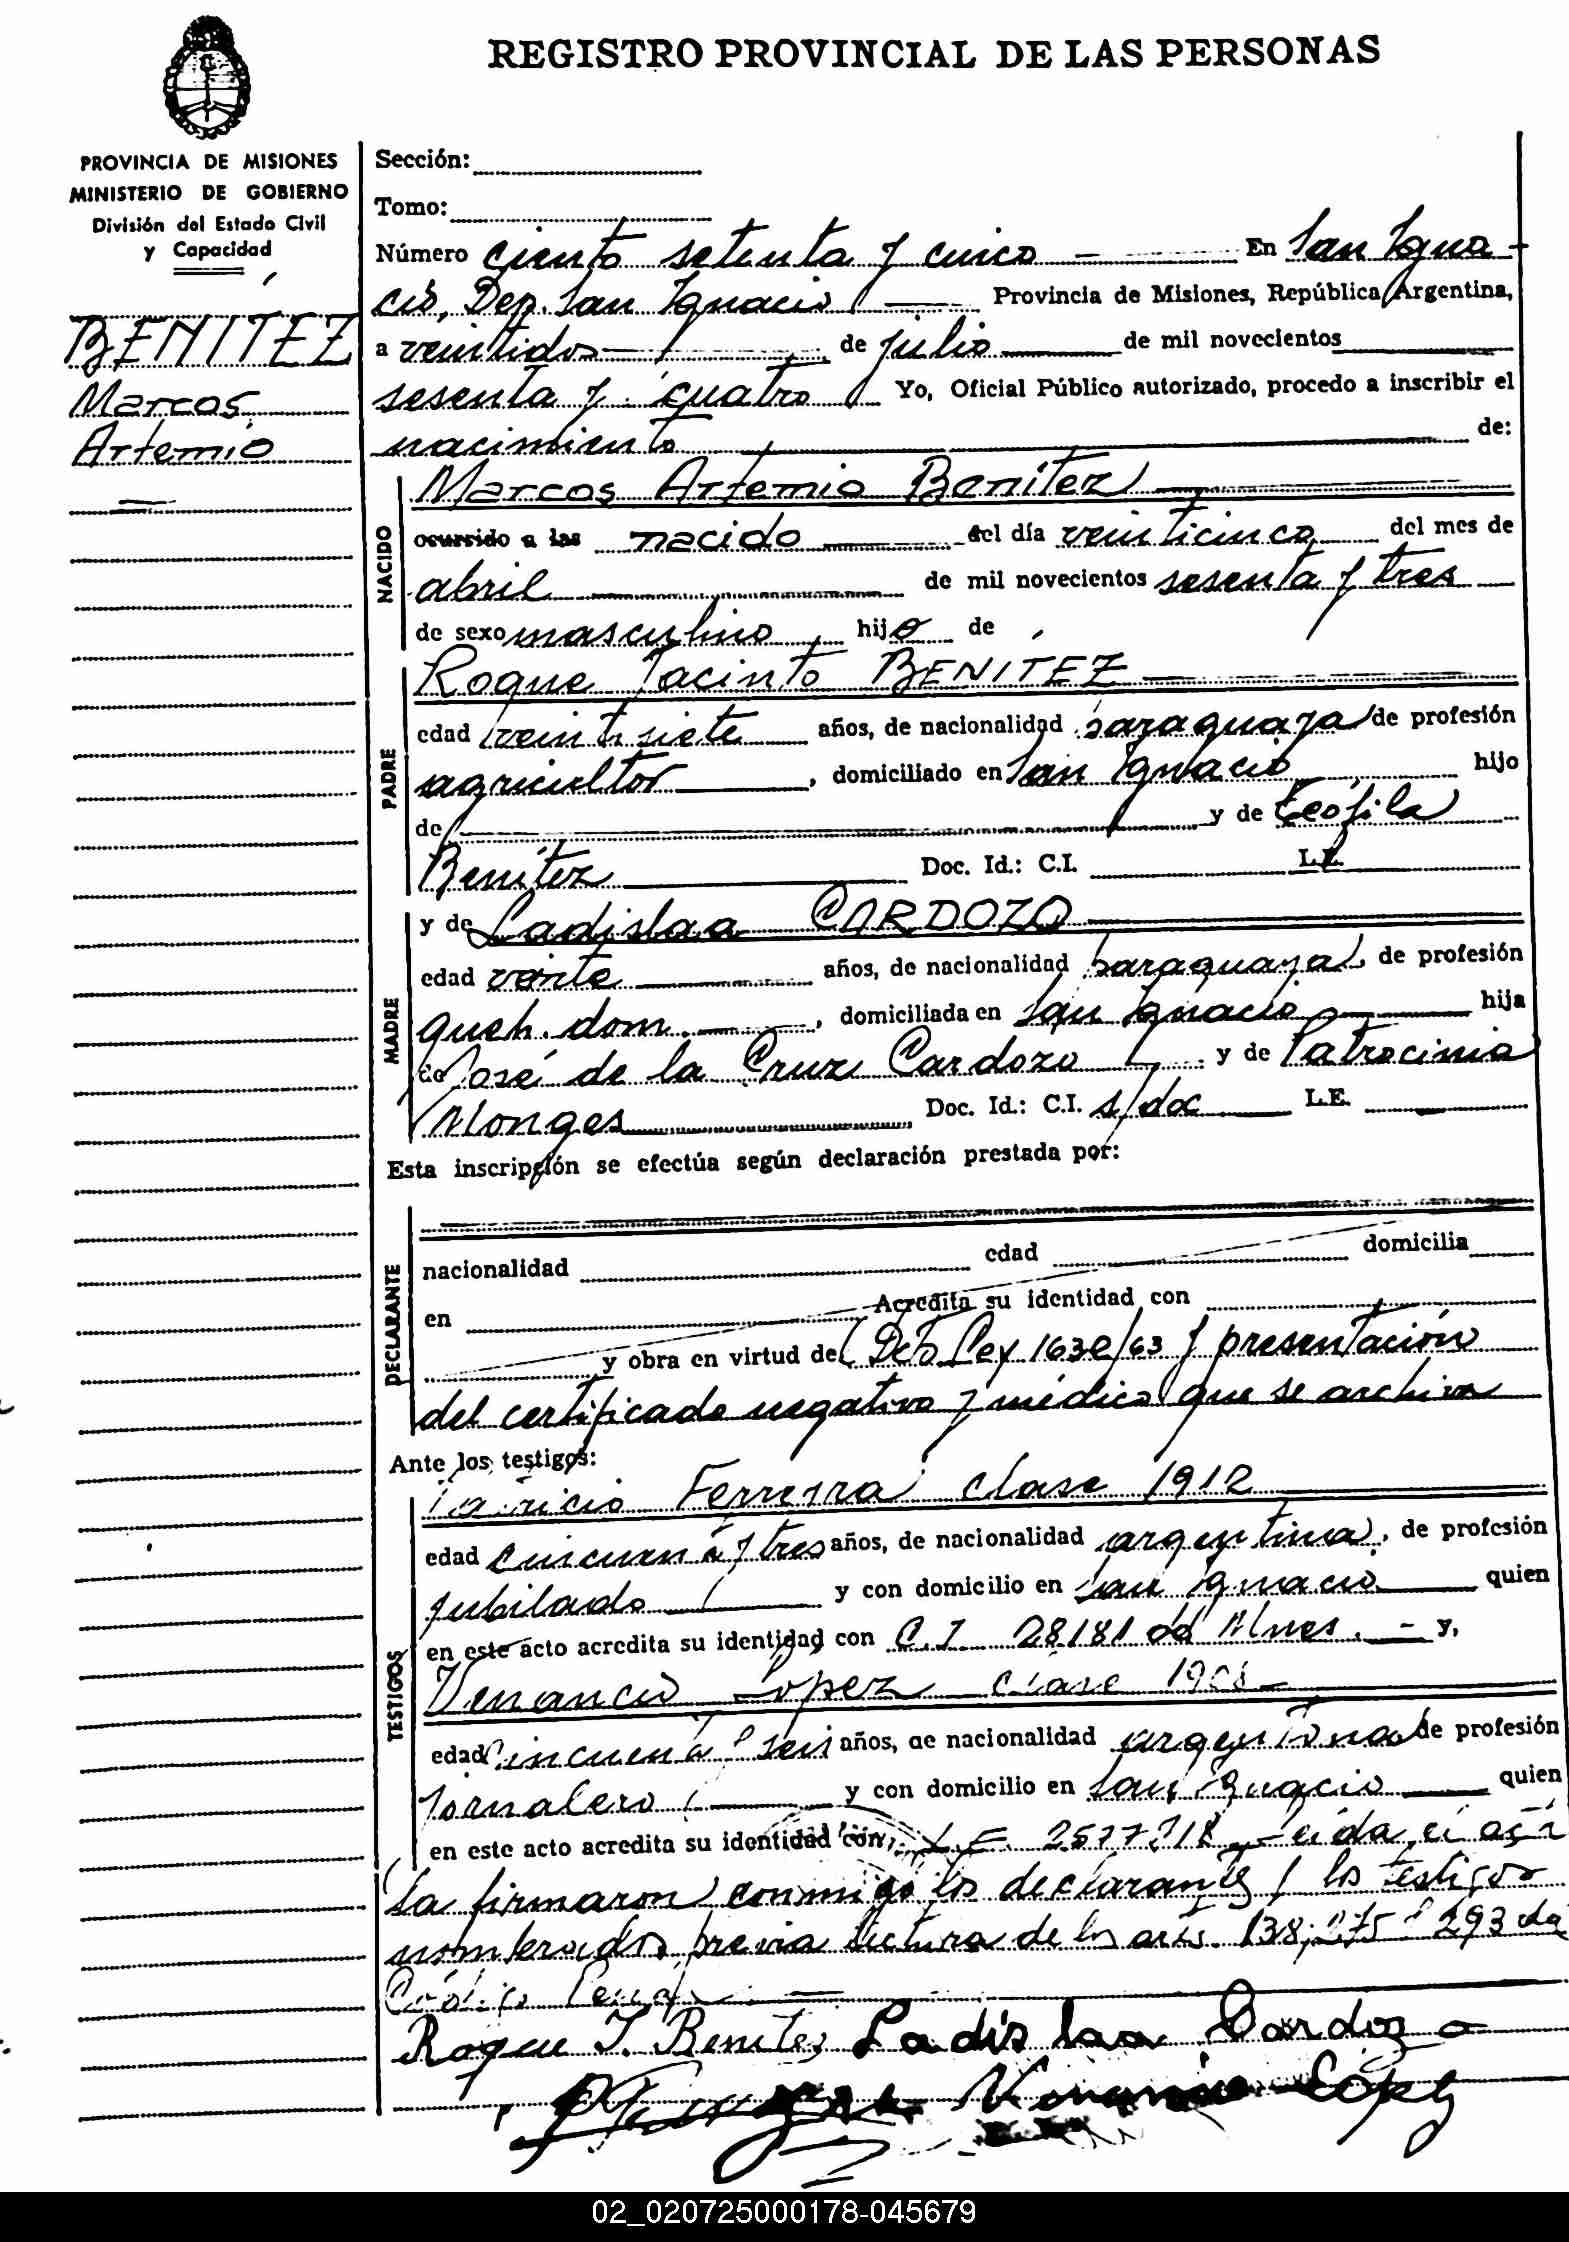 REGISTRO PROVINCIAL DE LAS PERSONAS
PROVINCIA DE MISIONES
MINISTERIO DE GOBIERNO
División del Estado Civil
y Capacidad
BENITEZ
Marcos
Artemio
Sección:
Tomo:
Número ciento setenta y cinco - En San Igna
cio, Dep. San Ignacio Provincia de Misiones, República Argentina,
a veintidos de julio de mil novecientos
sesenta y cuatro Yo, Oficial Público autorizado, procedo a inscribir el
nacimiento de:
NACIDO
Marcos Artemio Benítez
ocurrido a las nacido del día veinticinco del mes de
abril de mil novecientos sesenta y tres
de sexo masculino hijo de
PADRE
Roque Jacinto BENITEZ
edad veintisiete años, de nacionalidad paraguaya de profesión
agricultor, domiciliado en San Ignacio hijo
de y de Teófila
Benítez Doc. Id.: C.I. L.E.
MADRE
y de Ladislaa CARDOZO
edad veinte años, de nacionalidad paraguaya, de profesión
queh. dom., domiciliada en San Ignacio hija
de José de la Cruz Cardozo y de Patrocinia
Monges Doc. Id.: C.I. s/doc L.E.
Esta inscripción se efectúa según declaración prestada por:
DECLARANTE
nacionalidad edad domicilia
en Acredita su identidad con
y obra en virtud de Dcto Ley 1630/63 y presentación
del certificado negativo y médico que se archiva
Ante los testigos:
TESTIGOS
Ferreyra clase 1912
edad cincuenta y tres años, de nacionalidad argentina, de profesión
jubilado y con domicilio en San Ignacio quien
en este acto acredita su identidad con C.I. 28181 de Mnes. - y,
Venancio López clase 1908
edad cincuenta y seis años, de nacionalidad argentina de profesión
jornalero y con domicilio en San Ignacio quien
en este acto acredita su identidad con L.E. 2577218 - Leida el acta
la firmaron conmigo los declarantes y los testigos
nombrados previa lectura de los arts. 138, 275 y 293 del
Código Penal
Roque J. Benitez Ladislaa Cardozo
Venancio López
02_020725000178-045679